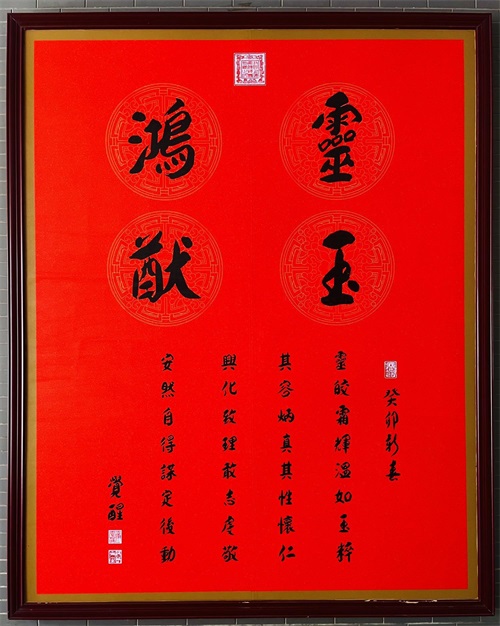 靈玉
鴻猷
癸卯新春
靈皎霜輝溫如玉粹
其容炳真其性懷仁
興化致理敢志虔敬
安然自得謀定後動
覺醒